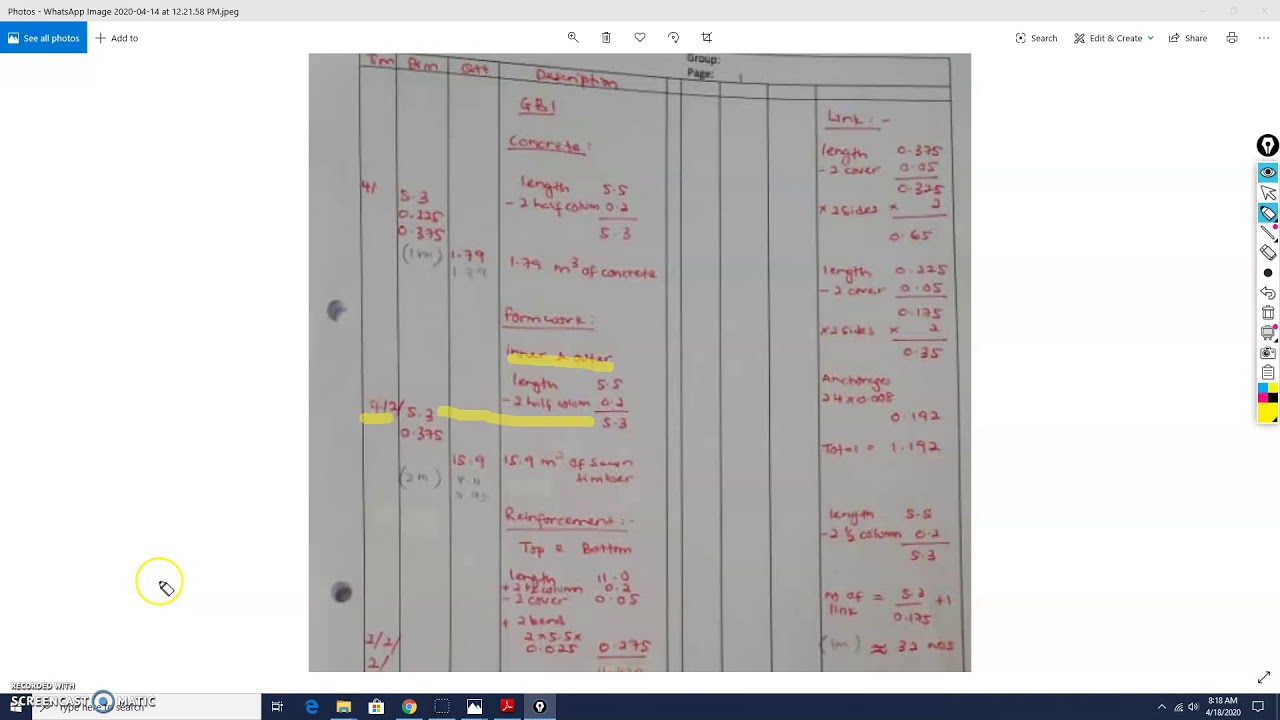 Photos - WhatsApp Image 2020-04-14 at 12.21.58 PM.jpeg
See all photos
Add to
Search
Edit & Create
Share
Group:
Page: 1
Tm Dim Qtt Description
GB1
Concrete:
4/
5.3
0.225
0.375
length 5.5
- 2 half column 0.2
5.3
(1m) 1.79
1.79 m³ of concrete
Formwork:
inner & outer
length 5.5
- 2 half column 0.2
5.3
4/2/ 5.3
0.375
15.9 15.9 m² of sawn
timber
(2m)
Reinforcement:-
Top & Bottom
length 11.0
+ 2 ½ column 0.2
- 2 cover 0.05
+ 2 bend
2 x 5.5 x
0.025 0.275
2/2/
2/
Link:-
length 0.375
- 2 cover 0.05
0.325
x 2 sides x 2
0.65
length 0.225
- 2 cover 0.05
0.175
x 2 sides x 2
0.35
Anchorages
24 x 0.008
0.192
Total = 1.192
length 5.5
- 2 ½ column 0.2
5.3
no of = 5.3 + 1
link 0.175
(1m) ≈ 32 nos
RECORDED WITH
SCREENCAST MATIC
Type here to search
8:18 AM
4/18/2020